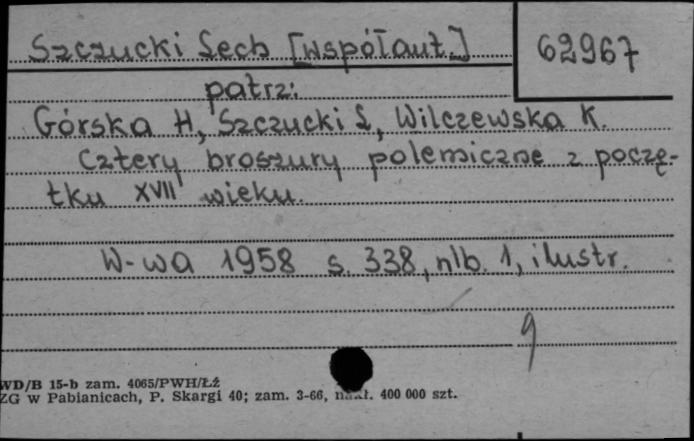 Szczucki Lech [współaut.]
62967
patrz:
Górska H, Szczucki L, Wilczewska K.
Cztery broszury polemiczne z począ-
tku XVII wieku.
W-wa 1958 s. 338, nlb. 1, ilustr.
9
WD/B 15-b zam. 4065/PWH/Łź
ZG w Pabianicach, P. Skargi 40; zam. 3-66, nakł. 400 000 szt.